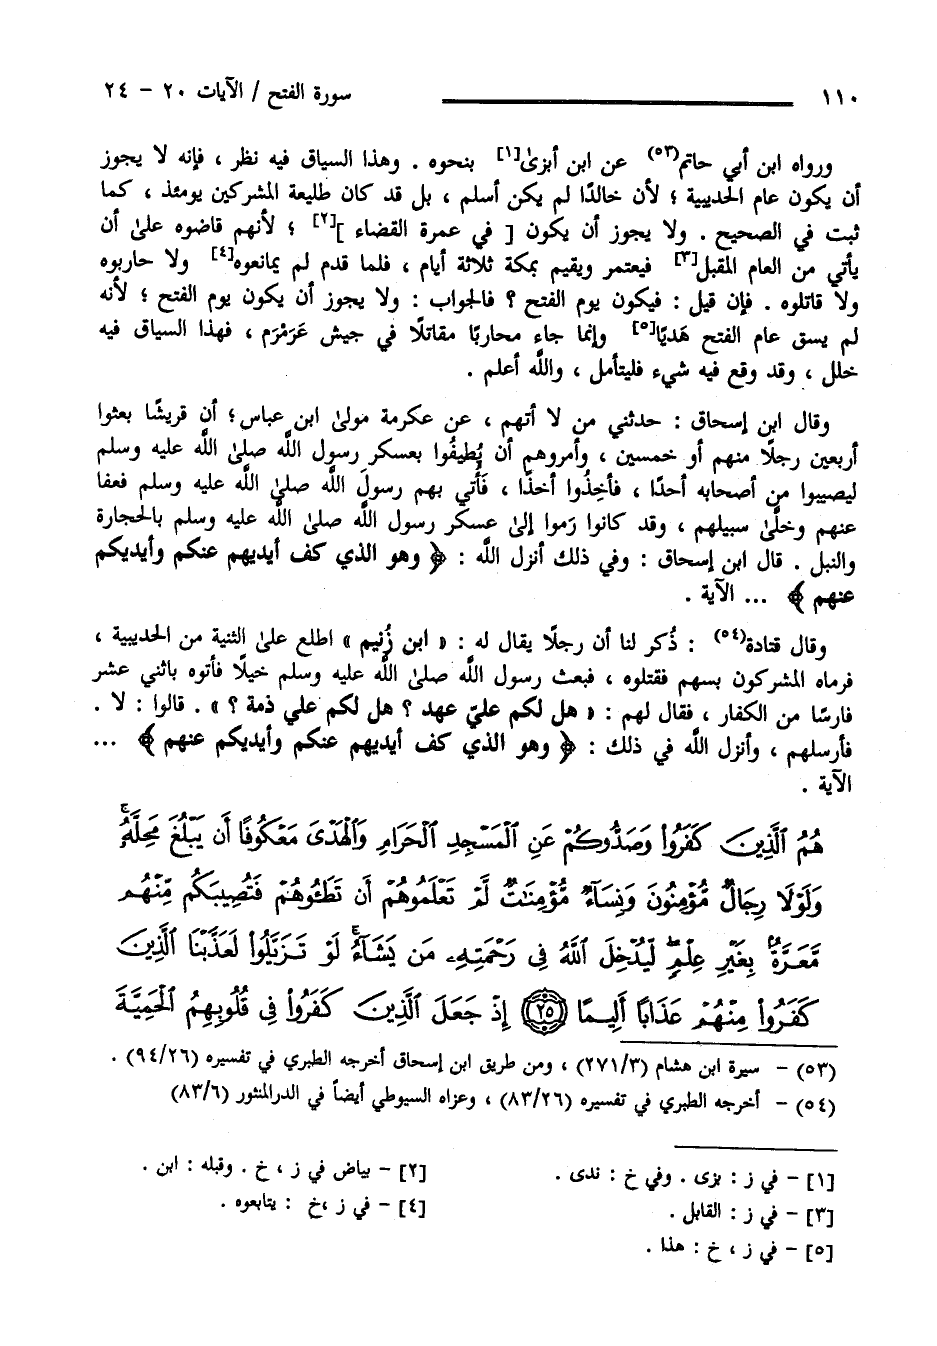 ١١٠ سورة الفتح / الآيات ٢٠ - ٢٤
ورواه ابن أبي حاتم(٥٣) عن ابن أبزىٰ[١] بنحوه . وهذا السياق فيه نظر ، فإنه لا يجوز
أن يكون عام الحديبية ؛ لأن خالدًا لم يكن أسلم ، بل قد كان طليعة المشركين يومئذ ، كما
ثبت في الصحيح . ولا يجوز أن يكون [ في عمرة القضاء ][٢] ؛ لأنهم قاضوه علىٰ أن
يأتي من العام المقبل[٣] فيعتمر ويقيم بمكة ثلاثة أيام ، فلما قدم لم يمانعوه[٤] ولا حاربوه
ولا قاتلوه . فإن قيل : فيكون يوم الفتح ؟ فالجواب : ولا يجوز أن يكون يوم الفتح ؛ لأنه
لم يسق عام الفتح هَديًا[٥] وإنما جاء محاربًا مقاتلًا في جيش عَرَمْرَم ، فهذا السياق فيه
خلل ، وقد وقع فيه شيء فليتأمل ، واللَّه أعلم .
وقال ابن إسحاق : حدثني من لا أتهم ، عن عكرمة مولىٰ ابن عباس؛ أن قريشًا بعثوا
أربعين رجلًا منهم أو خمسين ، وأمروهم أن يُطيفُوا بعسكر رسول اللَّه صلىٰ اللَّه عليه وسلم
ليصيبوا من أصحابه أحدًا ، فأخِذُوا أخذًا ، فَأُتي بهم رسولَ اللَّه صلىٰ اللَّه عليه وسلم فعفا
عنهم وخلَّىٰ سبيلهم ، وقد كانوا رَموا إلىٰ عسكر رسول اللَّه صلىٰ اللَّه عليه وسلم بالحجارة
والنبل . قال ابن إسحاق : وفي ذلك أنزل اللَّه : ﴿ وهو الذي كف أيديهم عنكم وأيديكم
عنهم ﴾ ... الآية .
وقال قتادة(٥٤) : ذُكر لنا أن رجلًا يقال له : « ابن زُنيم » اطلع علىٰ الثنية من الحديبية ،
فرماه المشركون بسهم فقتلوه ، فبعث رسول اللَّه صلىٰ اللَّه عليه وسلم خيلًا فأتوه باثني عشر
فارسًا من الكفار ، فقال لهم : « هل لكم عليّ عهد ؟ هل لكم علي ذمة ؟ » . قالوا : لا .
فأرسلهم ، وأنزل اللَّه في ذلك : ﴿ وهو الذي كف أيديهم عنكم وأيديكم عنهم ﴾ ...
الآية .
هُمُ ٱلَّذِينَ كَفَرُوا۟ وَصَدُّوكُمْ عَنِ ٱلْمَسْجِدِ ٱلْحَرَامِ وَٱلْهَدْىَ مَعْكُوفًا أَن يَبْلُغَ مَحِلَّهُۥ ۚ
وَلَوْلَا رِجَالٌ مُّؤْمِنُونَ وَنِسَآءٌ مُّؤْمِنَٰتٌ لَّمْ تَعْلَمُوهُمْ أَن تَطَـُٔوهُمْ فَتُصِيبَكُم مِّنْهُم
مَّعَرَّةٌۢ بِغَيْرِ عِلْمٍ ۖ لِّيُدْخِلَ ٱللَّهُ فِى رَحْمَتِهِۦ مَن يَشَآءُ ۚ لَوْ تَزَيَّلُوا۟ لَعَذَّبْنَا ٱلَّذِينَ
كَفَرُوا۟ مِنْهُمْ عَذَابًا أَلِيمًا ﴿٢٥﴾ إِذْ جَعَلَ ٱلَّذِينَ كَفَرُوا۟ فِى قُلُوبِهِمُ ٱلْحَمِيَّةَ
(٥٣) - سيرة ابن هشام (٢٧١/٣) ، ومن طريق ابن إسحاق أخرجه الطبري في تفسيره (٩٤/٢٦) .
(٥٤) - أخرجه الطبري في تفسيره (٨٣/٢٦) ، وعزاه السيوطي أيضاً في الدرالمنثور (٨٣/٦)
[١] - في ز : بزى . وفي خ : ندى . [٢] - بياض في ز ، خ . وقبله : ابن .
[٣] - في ز : القابل . [٤] - في ز ،خ : يتابعوه .
[٥] - في ز ، خ : هذا .